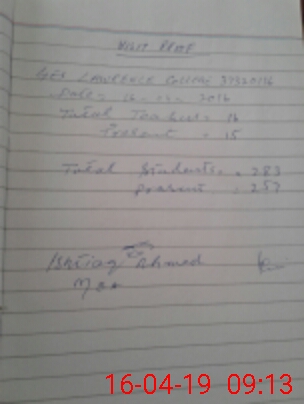 Visit PERF
GES LAWRENCE College 37320116
Date = 16 - 04 - 2016
Total Teachers = 16
Present = 15
Total Students = 283
present = 257
Ishtiaq Ahmed
16-04-19 09:13